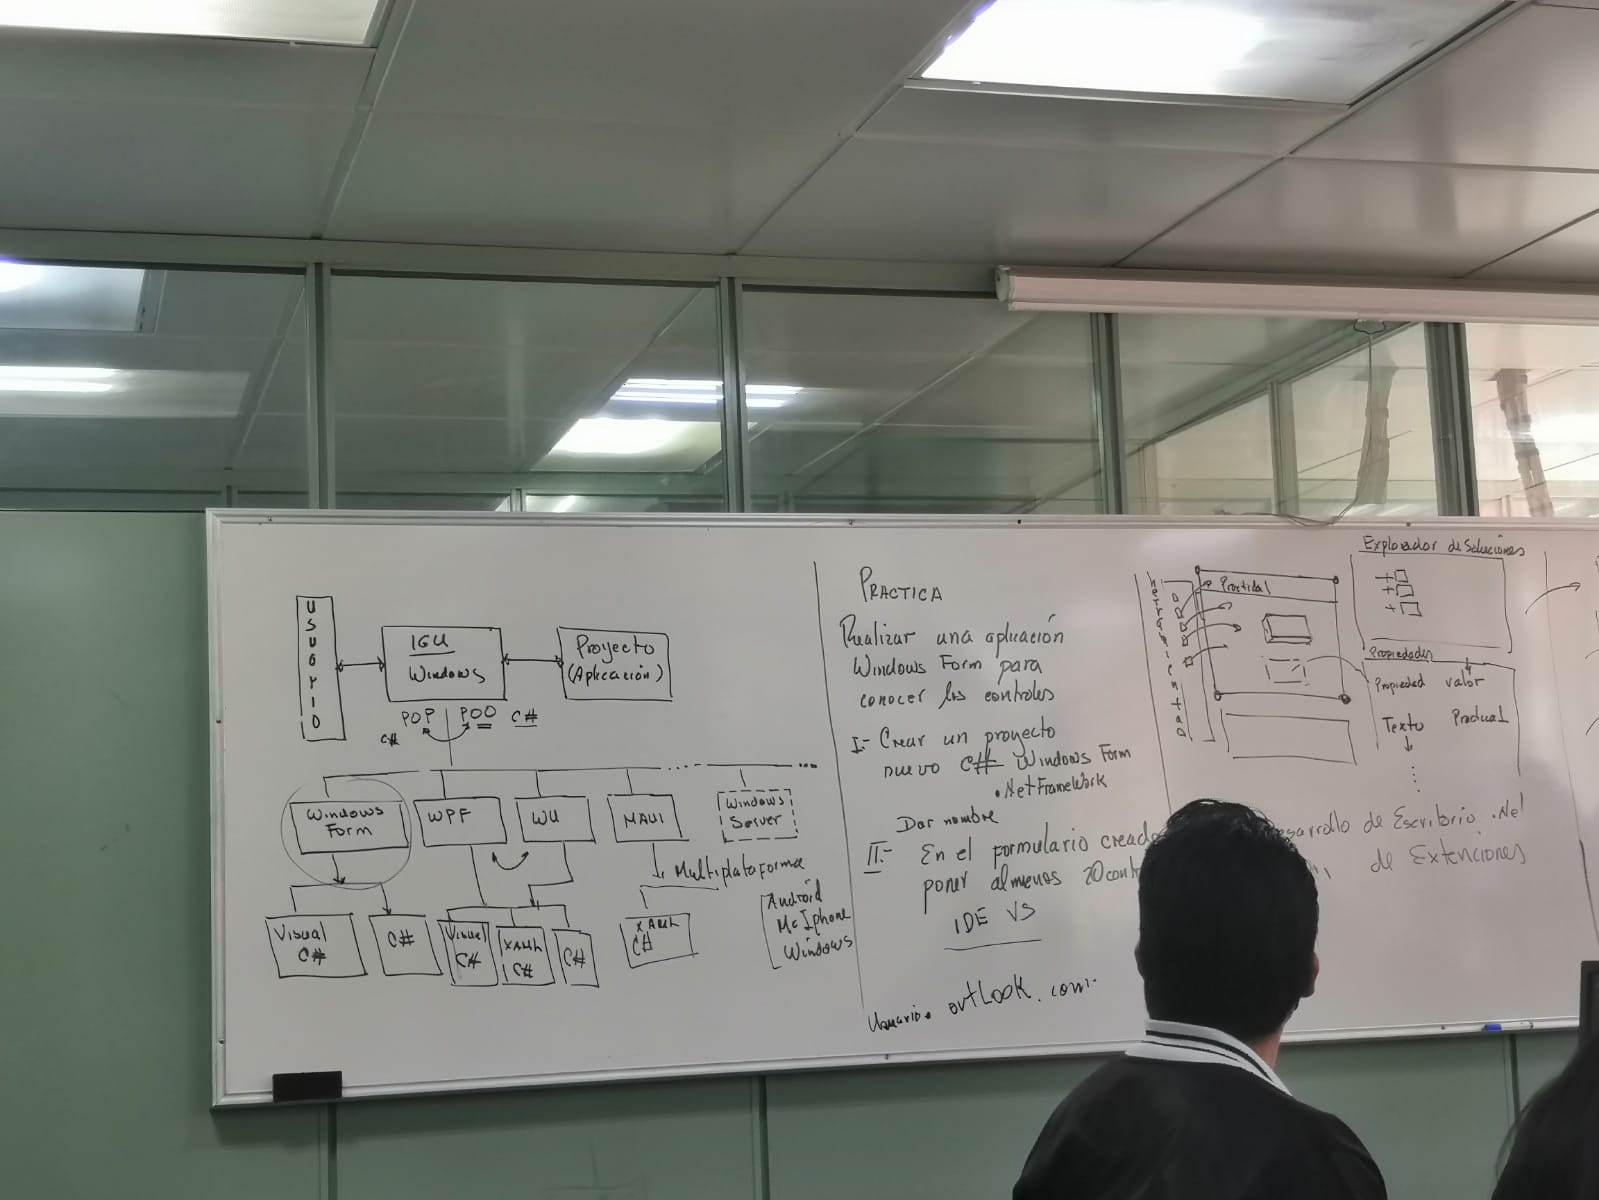 USUARIO
IGU
Windows
Proyecto
(Aplicación)
POP POO C#
C#
Windows
Form
WPF
WU
MAUI
Windows
Server
Multiplataforma
Visual
C#
C#
Visual
C#
XAML
C#
C#
XAML
C#
Android
Mc Iphone
Windows
PRACTICA
Realizar una aplicación
Windows Form para
conocer los controles
I.- Crear un proyecto
nuevo C# Windows Form
.NetFramework
Dar nombre
II.- En el formulario creado
poner almenos 20 cont
IDE VS
Usuario. outlook.com.
Practica1
Explorador de Soluciones
Propiedades
Propiedad valor
Texto
esarrollo de Escritorio .Net
de Extenciones